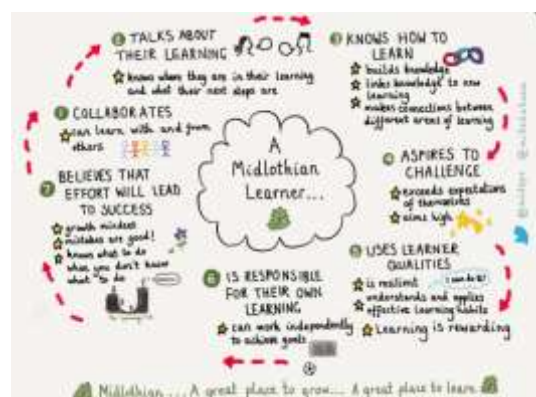 TALKS ABOUT
THEIR LEARNING
knows where they are in their learning
and what their next steps are
KNOWS HOW TO
LEARN
builds knowledge
links knowledge to new
learning
makes connections between
different areas of learning
ASPIRES TO
CHALLENGE
exceeds expectations
of themselves
aims high
USES LEARNER
QUALITIES
is resilient
I can do it!
understands and applies
effective learning habits
Learning is rewarding
IS RESPONSIBLE
FOR THEIR OWN
LEARNING
can work independently
to achieve goals
7
BELIEVES THAT
EFFORT WILL LEAD
TO SUCCESS
growth mindset
mistakes are good!
knows what to do
when you don't know
what to do
COLLABORATES
can learn with and from
others
A
Midlothian
Learner...
Midlothian... A great place to grow... A great place to learn